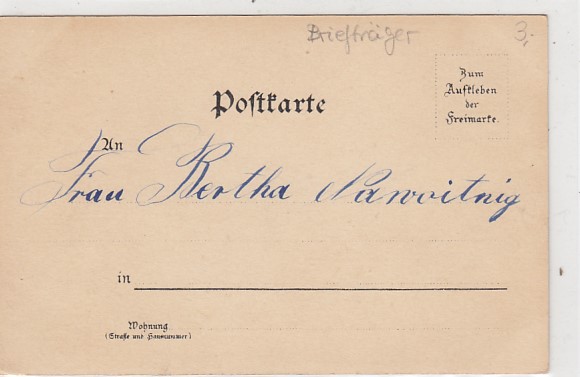 Briefträger 3,-
Zum
Aufkleben
der
Freimarke.
Postkarte
An
Frau Bertha Nawoitnig
in
Wohnung
(Straße und Hausnummer)